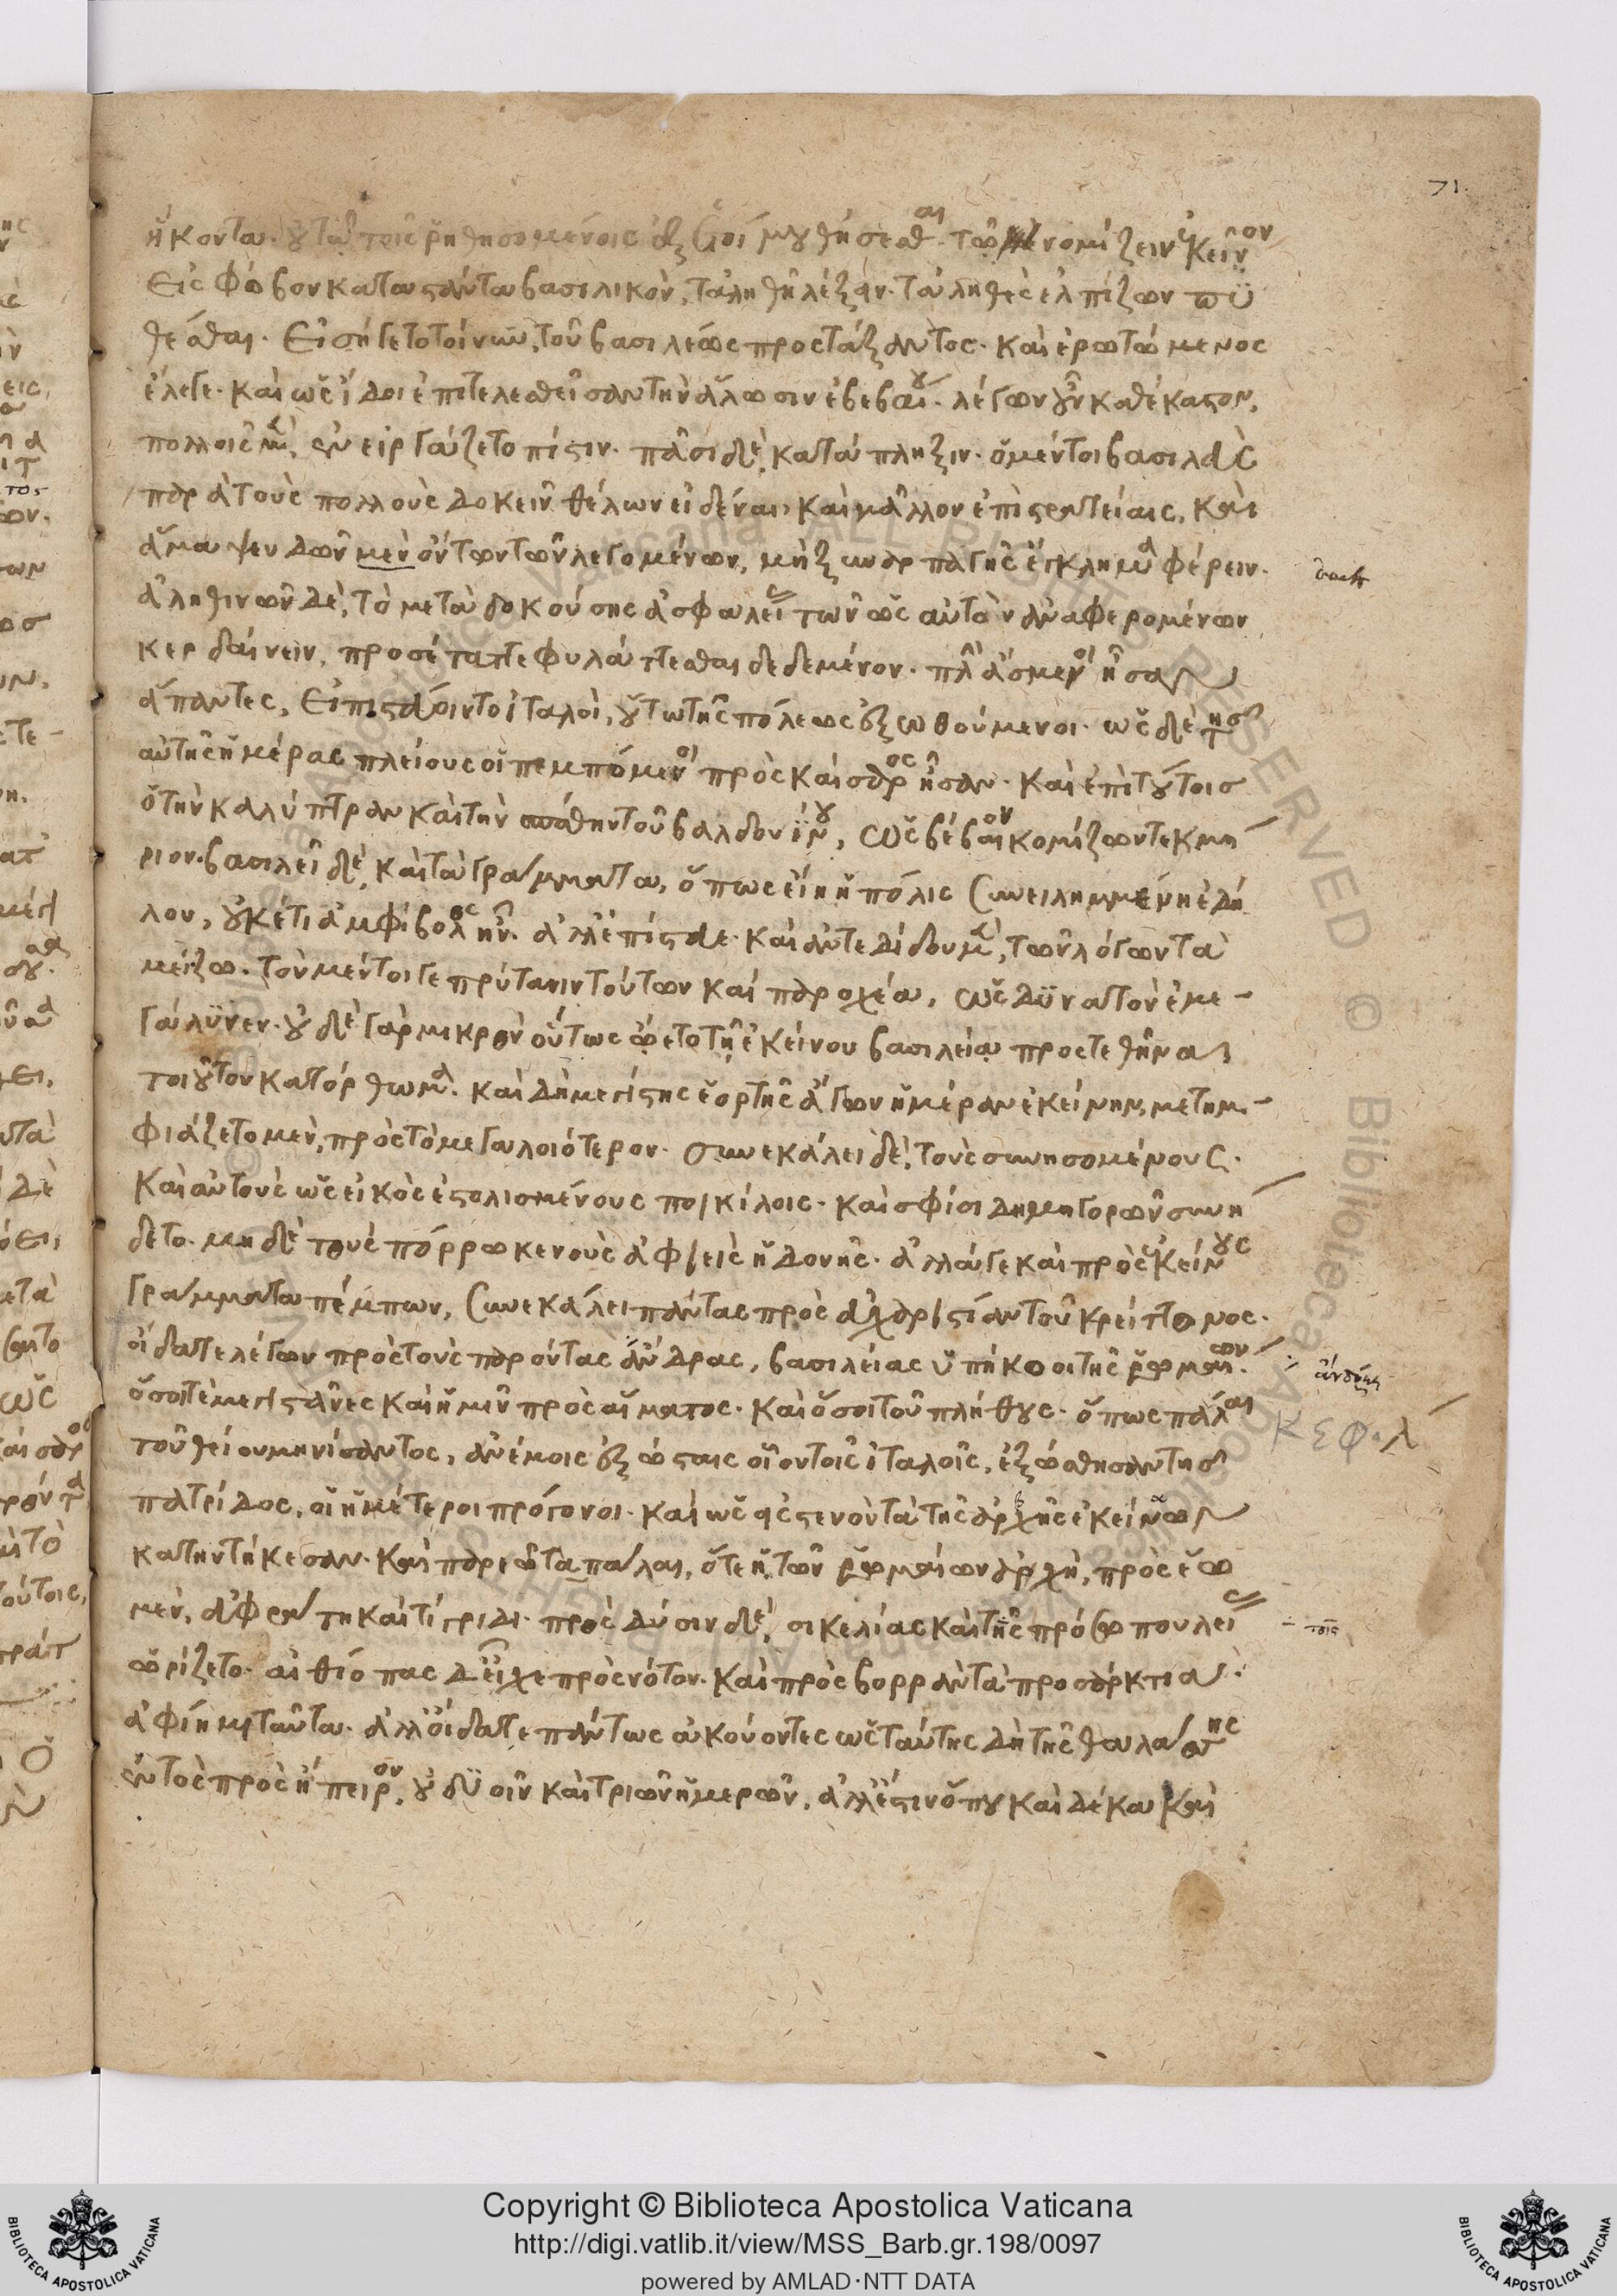 71.
ἥκοντα. οὕτω τοῖς ῥηθησομένοις ἐξ μυθήσεσθαι. τῷ νομίζειν ἐκεῖνον
εἰς φόβον καταστάντα βασιλικὸν, τἀληθῆ λέξαι. τἀληθὲς ἐλπίζων πυ
θέσθαι. εἰσήγετο τοίνυν, τοῦ βασιλέως προστάξαντος. καὶ ἐρωτώμενος
ἔλεγε. καὶ ὡς ἴδοι ἐπιτελεσθεῖσαν τὴν ἅλωσιν ἐβεβαίου. λέγων οὖν καθέκαστον,
πολλοῖς μὲν, ἐνειργάζετο πίστιν. πᾶσι δὲ, κατάπληξιν. ὁ μέντοι βασιλεὺς
παρὰ τοὺς πολλοὺς δοκεῖν θέλων εἰδέναι, καὶ μᾶλλον ἐπὶ στρατείαις, καὶ
ἅμα ψευδῶν μὲν ὄντων τῶν λεγομένων, μὴ ξυναρπαγῆς ἔγκλημα φέρειν.
ἀληθινῶν δὲ, τὸ μετὰ δοκούσης ἀσφαλείας τῶν ὡς αὐτὸν ἀναφερομένων
κερδαίνειν, προσέταττε φυλάττεσθαι δεδεμένον. πλὴν ἄσμενοι ἦσαν
ἅπαντες, εἰ πιστεύοιντο ἰταλοὶ, οὕτω τῆς πόλεως ἐξωθούμενοι. ὡς δὲ τῆς
αὐτῆς ἡμέρας πλείους οἱ πεμπόμενοι πρὸς καίσαρος ἦσαν. καὶ ἐπὶ τούτοις
ὁ τὴν καλύπτραν καὶ τὴν σπάθην τοῦ βαλδουίνου, ὡς βέβαιον κομίζων τεκμή
ριον. βασιλεῖ δὲ, καὶ τὰ γράμματα, ὅπως εἴη ἡ πόλις συνειλημμένη ἐδή
λου, οὐκέτι ἀμφίβολος ἦν. ἀλλ' ἐπίστευε. καὶ ἀντεδίδου μὲν, τῶν λόγων τὰ
μείζω. τὸν μέντοιγε πρύτανιν τούτων καὶ παροχέα, ὡς δυνατὸν ἐμε-
γάλυνεν. οὐδὲ γὰρ μικρὸν οὕτως ᾤετο τῇ ἐκείνου βασιλείᾳ προστεθῆναι
τοιοῦτον κατόρθωμα. καὶ δὴ μεγίστης ἑορτῆς ἄγων ἡμέραν ἐκείνην, μετημ-
φιάζετο μὲν, πρὸς τὸ μεγαλοιότερον. συνεκάλει δὲ, τοὺς συνησομένους.
καὶ αὐτοὺς ὡς εἰκὸς ἐστολισμένους ποικίλοις. καὶ σφίσι δημηγορῶν συνή
δετο. μηδὲ τοὺς πόρρω κενοὺς ἀφεὶς ἡδονῆς. ἀλλά γε καὶ πρὸς ἐκείνους
γράμματα πέμπων, συνεκάλει πάντας πρὸς εὐχαριστίαν τοῦ κρείττονος.
οἴδατε λέγων πρὸς τοὺς παρόντας ἄνδρες, βασιλείας ὑπήκοοι τῆς ῥωμαίων.
ὅσοι τὲ μεγιστᾶνες καὶ ἡμῖν πρὸς αἵματος. καὶ ὅσοι τοῦ πλήθους. ὅπως πάλαι
τοῦ θείου μηνίσαντος, ἀνέμοις ἐξώσταις οἷον τοῖς ἰταλοῖς, ἐξώσθησαν τῆς
πατρίδος, οἱ ἡμέτεροι πρόγονοι. καὶ ὡς εἰς στενὸν τὰ τῆς ἀρχῆς ἐκείνων
κατηντήκεσαν. καὶ παρεῶ τὰ πάλαι, ὅτε ἡ τῶν ῥωμαίων ἀρχὴ, πρὸς ἕω
μὲν, εὐφράτῃ καὶ τίγριδι. πρὸς δύσιν δὲ, σικελίας καὶ τῆς πρόσω πουλείας
ὡρίζετο. αἰθίοπας δ' εἶχε πρὸς νότον. καὶ πρὸς βορρᾶν τὰ προσάρκτια.
ἀφίημι ταῦτα. ἀλλ' οἴδατε πάντως ἀκούοντες ὡς ταύτης δὴ τῆς θαλάσσης
ἐντὸς πρὸς ἤπειρον, οὐ δυοῖν καὶ τριῶν ἡμερῶν, ἀλλ' ἔστιν ὅπου καὶ δέκα καὶ
ἄνδρες
ΚΕΦ. λ
Copyright © Biblioteca Apostolica Vaticana
http://digi.vatlib.it/view/MSS_Barb.gr.198/0097
powered by AMLAD·NTT DATA